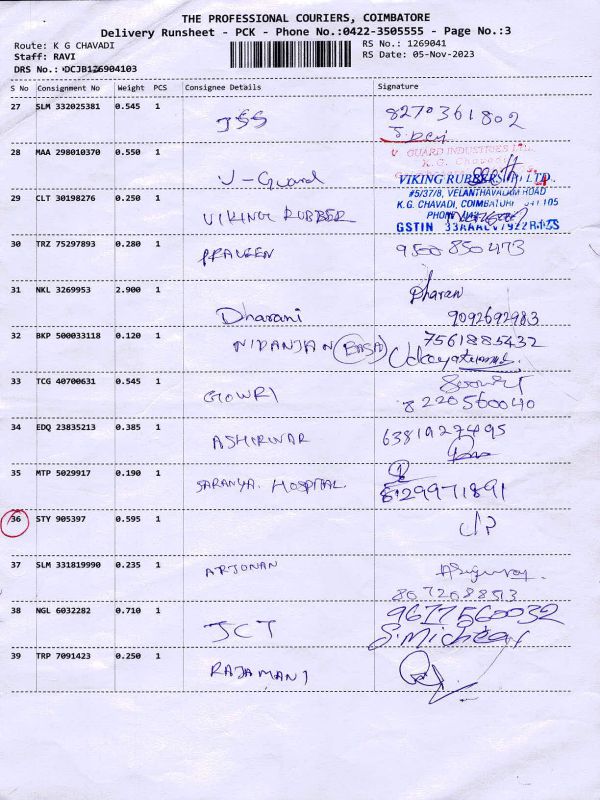 THE PROFESSIONAL COURIERS, COIMBATORE
Delivery Runsheet - PCK - Phone No.:0422-3505555 - Page No.:3
Route: K G CHAVADI
RS No.: 1269041
Staff: RAVI
RS Date: 05-Nov-2023
DRS No.: DCJB126904103
S No Consignment No Weight PCS Consignee Details Signature
27 SLM 332025381 0.545 1
JSS 8270361802
28 MAA 298010370 0.550 1
V GUARD INDUSTRIES
K.G. Chavadi
V-Guard
VIKING RUBBERS LTD.
29 CLT 30198276 0.250 1
#5/37/8, VELANTHAVALAM ROAD
K.G. CHAVADI, COIMBATORE 641 105
VIKING RUBBER
GSTIN
30 TRZ 75297893 0.280 1
PRAVEEN 9500850473
31 NKL 3269953 2.900 1
Dharan
Dharani 9092692983
32 BKP 500033118 0.120 1
NIRANJAN 7561885432
33 TCG 40700631 0.545 1
GOWRI 8220560040
34 EDQ 23835213 0.385 1
ASHIRWAR
35 MTP 5029917 0.190 1
SARANYA HOSPITAL
36 STY 905397 0.595 1
37 SLM 331819990 0.235 1
ARJUNAN
38 NGL 6032282 0.710 1
9677560032
JCT
39 TRP 7091423 0.250 1
RAJAMANI